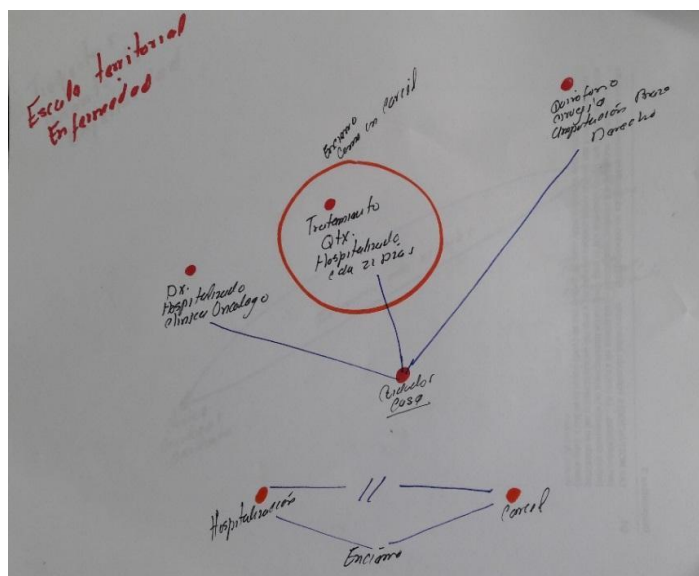 Escala territorial
Enfermedad
Encierro
Como un Carcel
Quirofano
Cirugia
Amputación Brazo
Derecho
Tratamiento
Qtx.
Hospitalizado
Cda 21 Dias
Dx.
Hospitalizado
Clinica Oncologo
Cuidador
Casa
Hospitalización
//
Carcel
Encierro